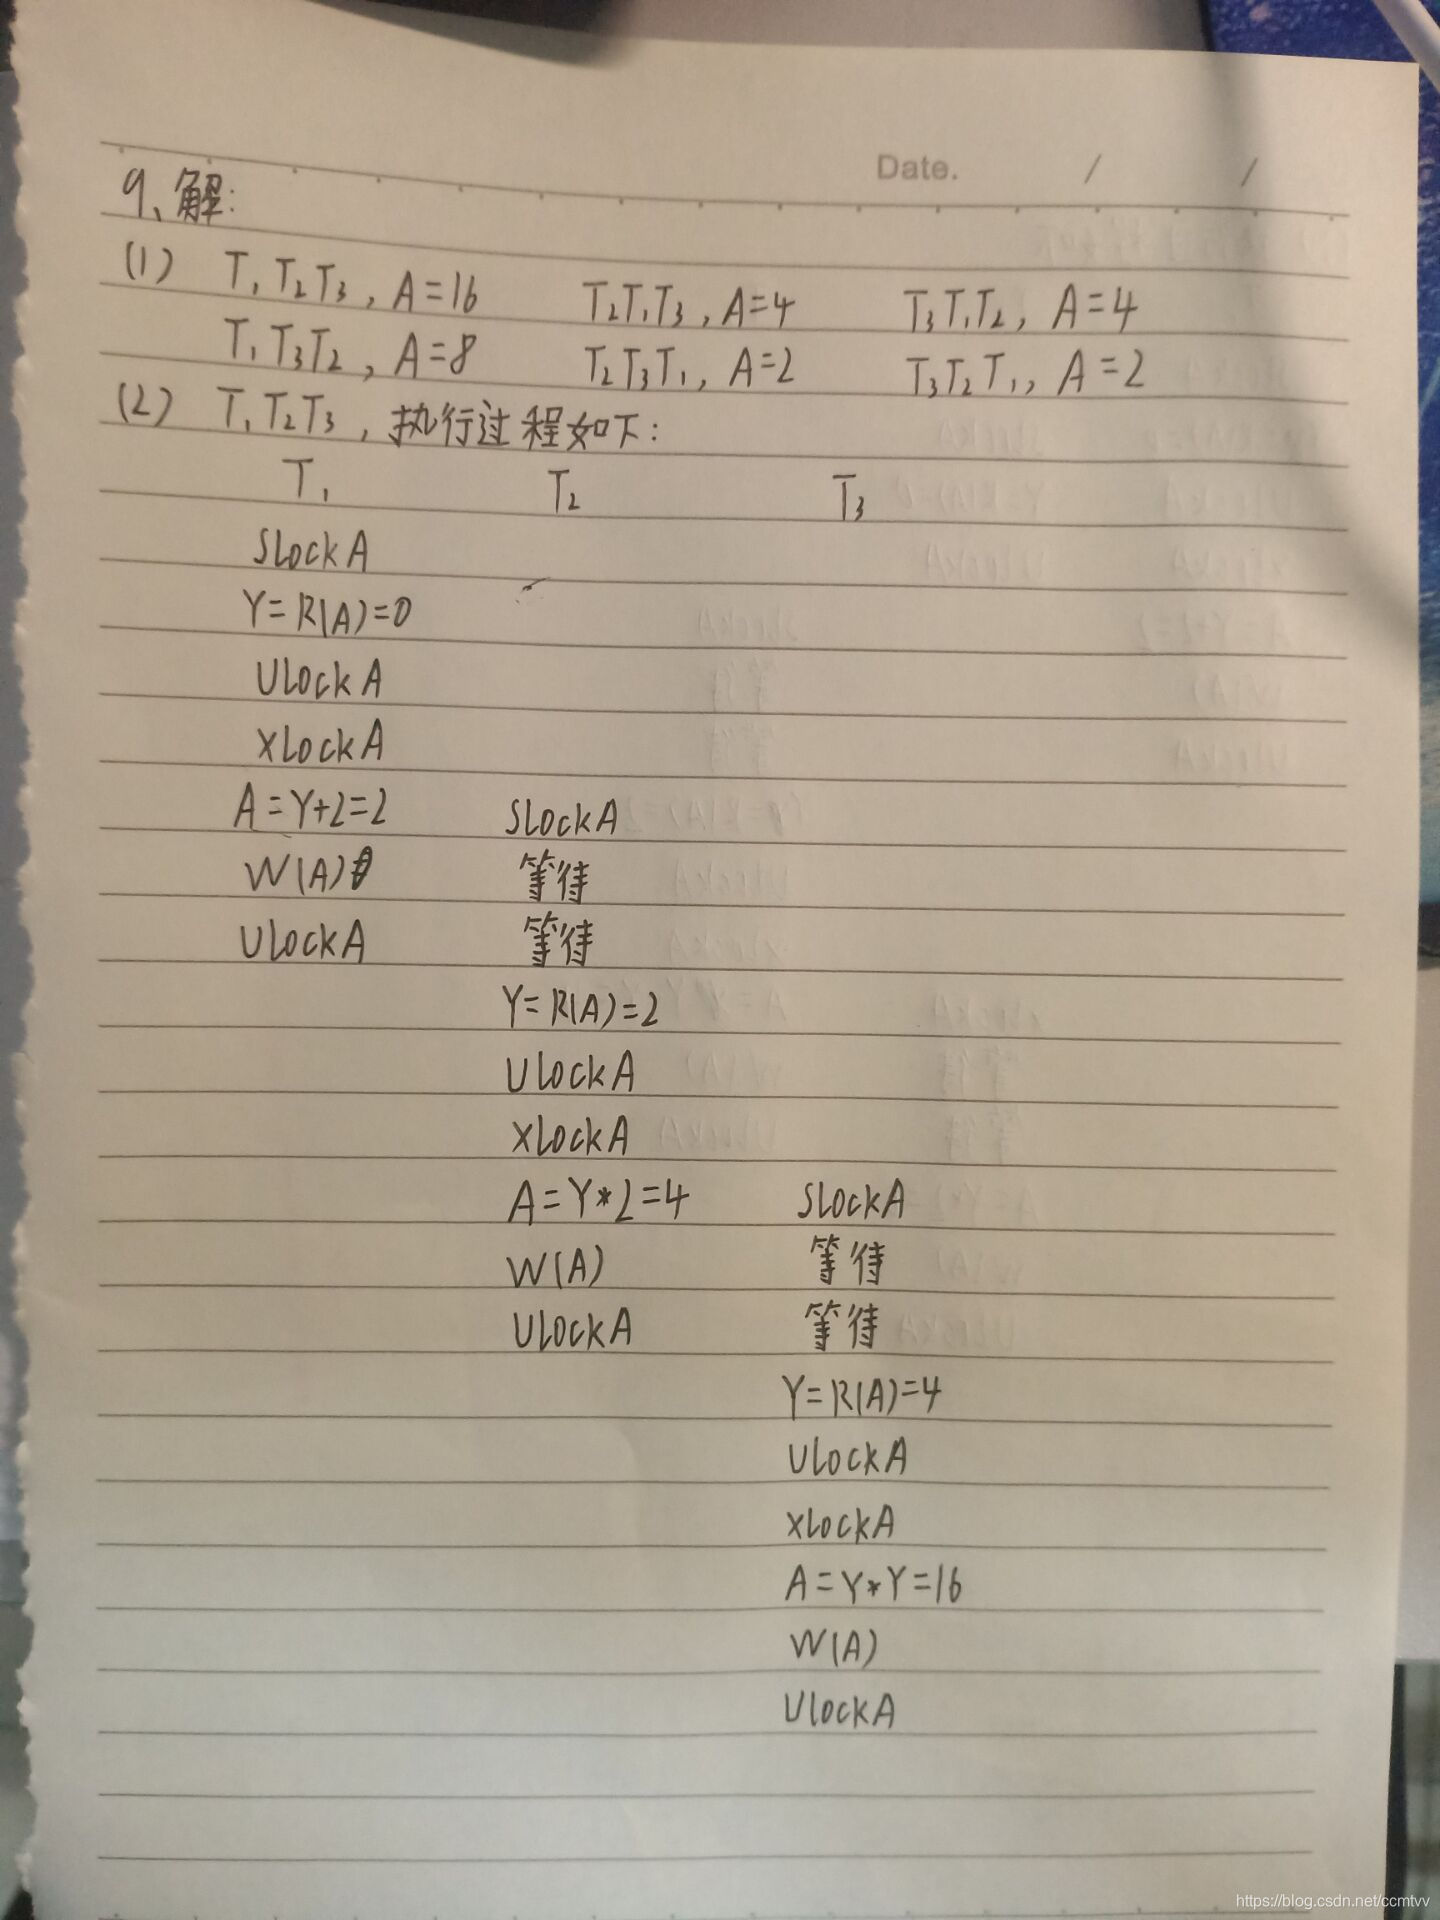 Date. / /
9、解:
(1) T₁T₂T₃, A=16 T₂T₁T₃, A=4 T₃T₁T₂, A=4
T₁T₃T₂, A=8 T₂T₃T₁, A=2 T₃T₂T₁, A=2
(2) T₁T₂T₃, 执行过程如下:
T₁ T₂ T₃
SLockA
Y=R(A)=0
ULockA
XLockA
A=Y+2=2 SLockA
W(A) 等待
ULockA 等待
Y=R(A)=2
ULockA
XLockA
A=Y*2=4 SLockA
W(A) 等待
ULockA 等待
Y=R(A)=4
ULockA
XLockA
A=Y*Y=16
W(A)
ULockA
https://blog.csdn.net/ccmtvv